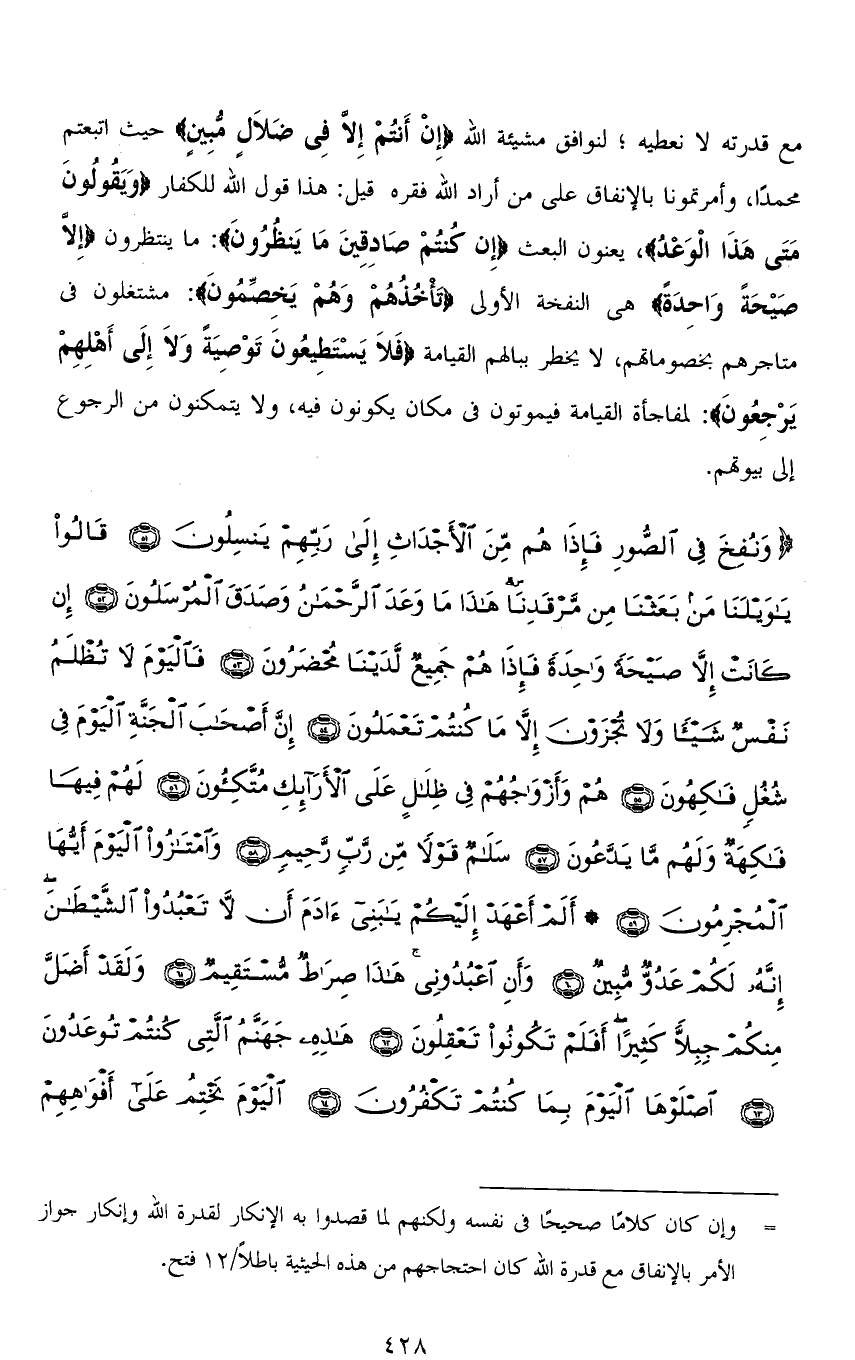 مع قدرته لا نعطيه ؛ لنوافق مشيئة الله ﴿إِنْ أَنتُمْ إِلاَّ فِى ضَلاَلٍ مُّبِينٍ﴾ حيث اتبعتم
محمدًا، وأمرتمونا بالإنفاق على من أراد الله فقره قيل: هذا قول الله للكفار ﴿وَيَقُولُونَ
مَتَى هَذَا الْوَعْدُ﴾، يعنون البعث ﴿إِن كُنتُمْ صَادِقِينَ مَا يَنظُرُونَ﴾: ما ينتظرون ﴿إِلاَّ
صَيْحَةً وَاحِدَةً﴾ هى النفخة الأولى ﴿تَأْخُذُهُمْ وَهُمْ يَخِصِّمُونَ﴾: مشتغلون فى
متاجرهم بخصوماتهم، لا يخطر ببالهم القيامة ﴿فَلاَ يَسْتَطِيعُونَ تَوْصِيَةً وَلاَ إِلَى أَهْلِهِمْ
يَرْجِعُونَ﴾: لمفاجأة القيامة فيموتون فى مكان يكونون فيه، ولا يتمكنون من الرجوع
إلى بيوتهم.
﴿ وَنُفِخَ فِى ٱلصُّورِ فَإِذَا هُم مِّنَ ٱلْأَجْدَاثِ إِلَىٰ رَبِّهِمْ يَنسِلُونَ ۝٥١ قَالُوا۟
يَـٰوَيْلَنَا مَنۢ بَعَثَنَا مِن مَّرْقَدِنَا ۜ هَـٰذَا مَا وَعَدَ ٱلرَّحْمَـٰنُ وَصَدَقَ ٱلْمُرْسَلُونَ ۝٥٢ إِن
كَانَتْ إِلَّا صَيْحَةً وَٰحِدَةً فَإِذَا هُمْ جَمِيعٌ لَّدَيْنَا مُحْضَرُونَ ۝٥٣ فَٱلْيَوْمَ لَا تُظْلَمُ
نَفْسٌ شَيْـًٔا وَلَا تُجْزَوْنَ إِلَّا مَا كُنتُمْ تَعْمَلُونَ ۝٥٤ إِنَّ أَصْحَـٰبَ ٱلْجَنَّةِ ٱلْيَوْمَ فِى
شُغُلٍ فَـٰكِهُونَ ۝٥٥ هُمْ وَأَزْوَٰجُهُمْ فِى ظِلَـٰلٍ عَلَى ٱلْأَرَآئِكِ مُتَّكِـُٔونَ ۝٥٦ لَهُمْ فِيهَا
فَـٰكِهَةٌ وَلَهُم مَّا يَدَّعُونَ ۝٥٧ سَلَـٰمٌ قَوْلًا مِّن رَّبٍّ رَّحِيمٍ ۝٥٨ وَٱمْتَـٰزُوا۟ ٱلْيَوْمَ أَيُّهَا
ٱلْمُجْرِمُونَ ۝٥٩ * أَلَمْ أَعْهَدْ إِلَيْكُمْ يَـٰبَنِىٓ ءَادَمَ أَن لَّا تَعْبُدُوا۟ ٱلشَّيْطَـٰنَ ۖ
إِنَّهُۥ لَكُمْ عَدُوٌّ مُّبِينٌ ۝٦٠ وَأَنِ ٱعْبُدُونِى ۚ هَـٰذَا صِرَٰطٌ مُّسْتَقِيمٌ ۝٦١ وَلَقَدْ أَضَلَّ
مِنكُمْ جِبِلًّا كَثِيرًا ۖ أَفَلَمْ تَكُونُوا۟ تَعْقِلُونَ ۝٦٢ هَـٰذِهِۦ جَهَنَّمُ ٱلَّتِى كُنتُمْ تُوعَدُونَ
۝٦٣ ٱصْلَوْهَا ٱلْيَوْمَ بِمَا كُنتُمْ تَكْفُرُونَ ۝٦٤ ٱلْيَوْمَ نَخْتِمُ عَلَىٰٓ أَفْوَٰهِهِمْ
= وإن كان كلامًا صحيحًا فى نفسه ولكنهم لما قصدوا به الإنكار لقدرة الله وإنكار جواز
الأمر بالإنفاق مع قدرة الله كان احتجاجهم من هذه الحيثية باطلاً/١٢ فتح.
٤٢٨